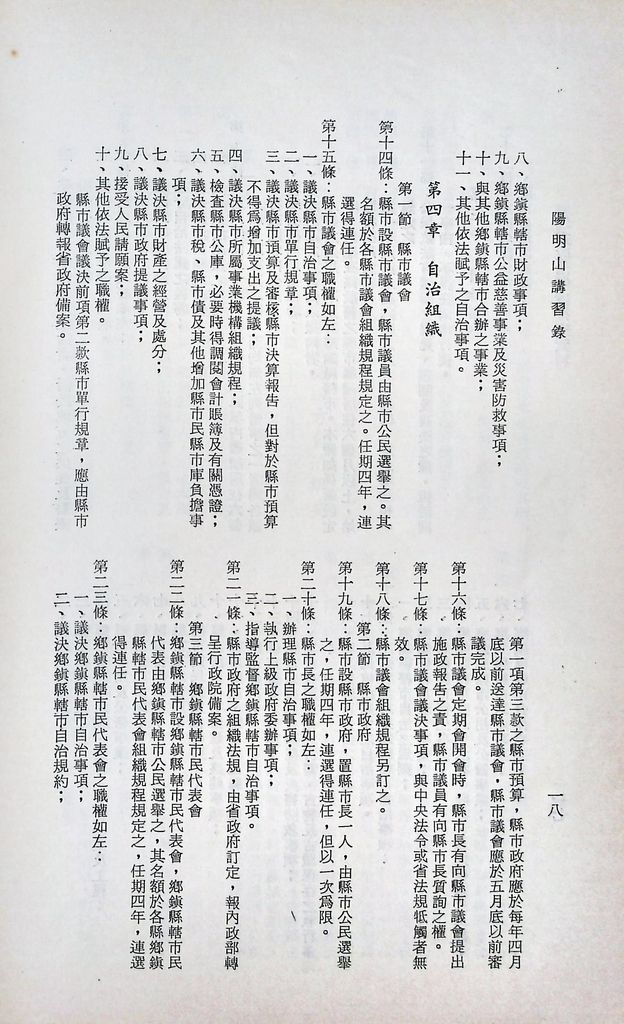 陽明山講習錄
一八
八、鄉鎮縣轄市財政事項；
九、鄉鎮縣轄市公益慈善事業及災害防救事項；
十、與其他鄉鎮縣轄市合辦之事業；
十一、其他依法賦予之自治事項。
第四章　自治組織
第一節　縣市議會
第十四條：縣市設縣市議會，縣市議員由縣市公民選舉之。其
名額於各縣市議會組織規程規定之。任期四年，連
選得連任。
第十五條：縣市議會之職權如左：
一、議決縣市自治事項；
二、議決縣市單行規章；
三、議決縣市預算及審核縣市決算報告，但對於縣市預算
不得為增加支出之提議；
四、議決縣市所屬事業機構組織規程；
五、檢查縣市公庫，必要時得調閱會計賬簿及有關憑證；
六、議決縣市稅、縣市債及其他增加縣市民縣市庫負擔事
項；
七、議決縣市財產之經營及處分；
八、議決縣市政府提議事項；
九、接受人民請願案；
十、其他依法賦予之職權。
縣市議會議決前項第二款縣市單行規章，應由縣市
政府轉報省政府備案。
第一項第三款之縣市預算，縣市政府應於每年四月
底以前送達縣市議會，縣市議會應於五月底以前審
議完成。
第十六條：縣市議會定期會開會時，縣市長有向縣市議會提出
施政報告之責，縣市議員有向縣市長質詢之權。
第十七條：縣市議會議決事項，與中央法令或省法規牴觸者無
效。
第十八條：縣市議會組織規程另訂之。
第二節　縣市政府
第十九條：縣市設縣市政府，置縣市長一人，由縣市公民選舉
之，任期四年，連選得連任，但以一次為限。
第二十條：縣市長之職權如左：
一、辦理縣市自治事項；
二、執行上級政府委辦事項；
三、指導監督鄉鎮縣轄市自治事項。
第二一條：縣市政府之組織法規，由省政府訂定，報內政部轉
呈行政院備案。
第三節　鄉鎮縣轄市民代表會
第二二條：鄉鎮縣轄市設鄉鎮縣轄市民代表會，鄉鎮縣轄市民
代表由鄉鎮縣轄市公民選舉之，其名額於各縣鄉鎮
縣轄市民代表會組織規程規定之，任期四年，連選
得連任。
第二三條：鄉鎮縣轄市民代表會之職權如左：
一、議決鄉鎮縣轄市自治事項；
二、議決鄉鎮縣轄市自治規約；